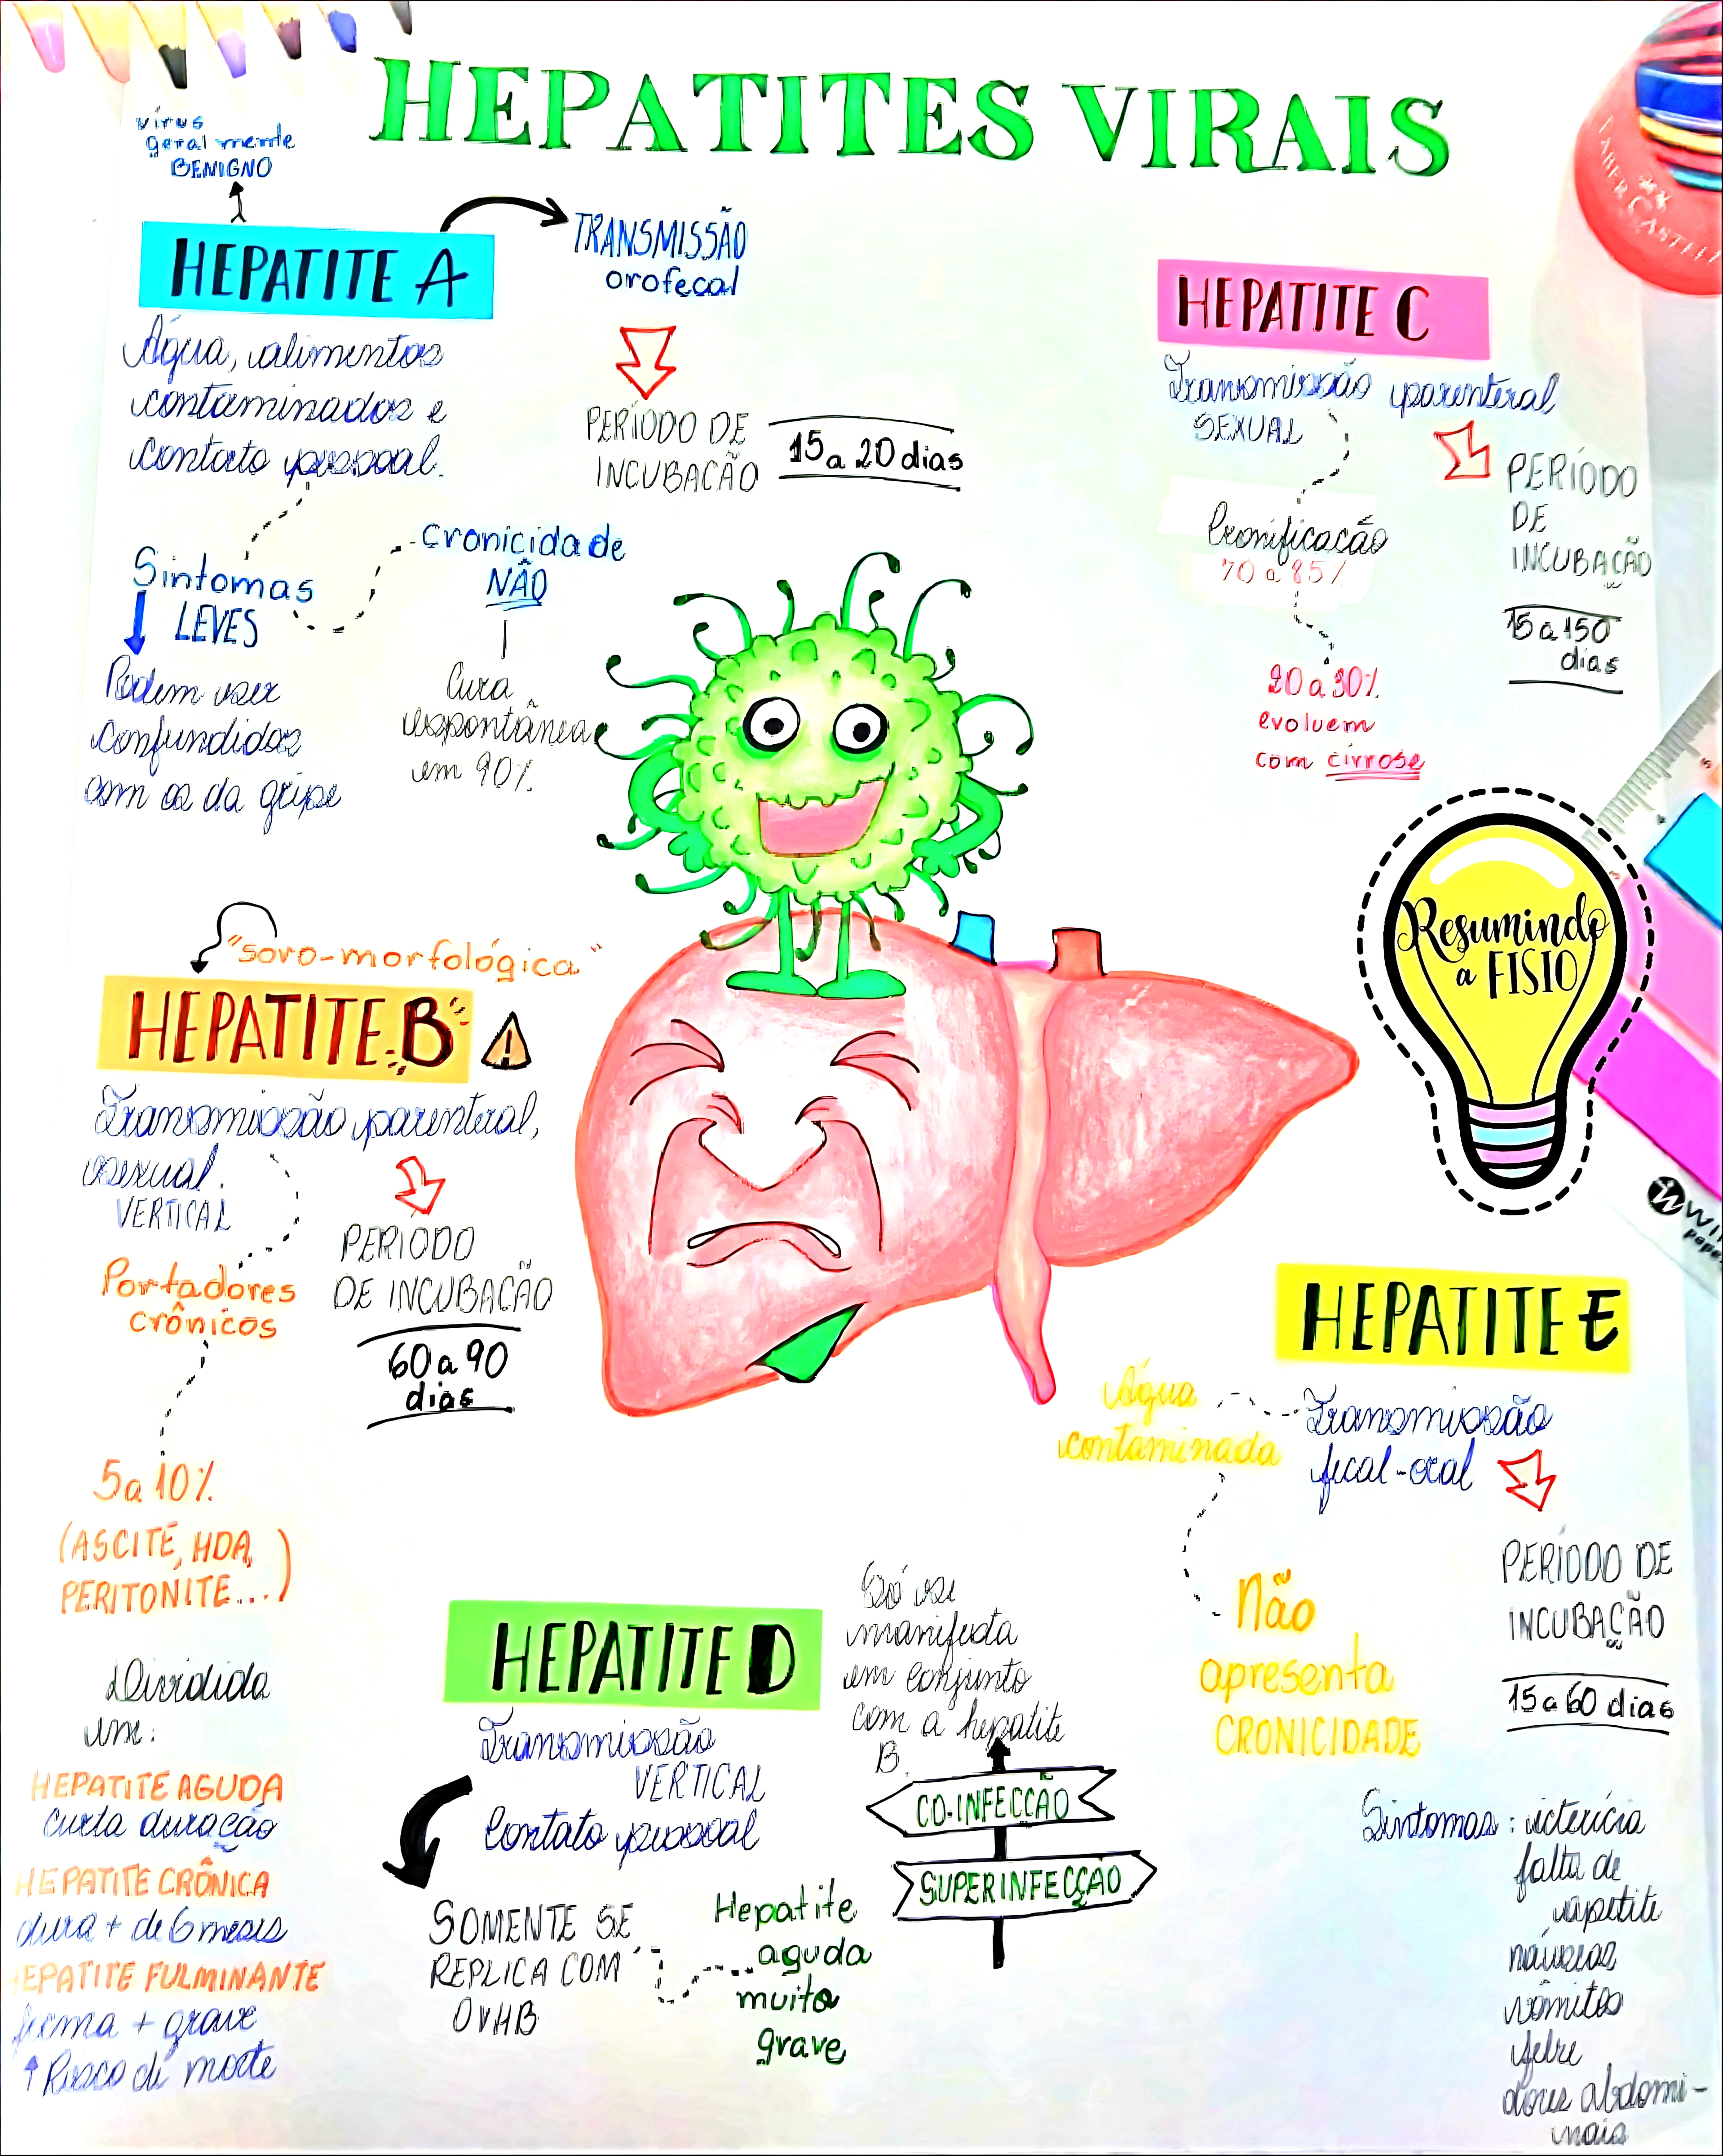 HEPATITES VIRAIS
vírus
geralmente
BENIGNO
HEPATITE A
Água, alimentos
contaminados e
contato pessoal.
TRANSMISSÃO
orofecal
PERÍODO DE
INCUBACÃO
15 a 20 dias
Sintomas
LEVES
Podem ser
confundidos
com os da gripe
Cronicidade
NÃO
Cura
espontânea
em 90%.
HEPATITE C
Transmissão parenteral
SEXUAL
PERÍODO
DE
INCUBAÇÃO
15 a 150
dias
Cronificacão
70 a 85%
20 a 30%
evoluem
com cirrose
FABER CASTELL
Resumindo
a FISIO
"soro-morfológica"
HEPATITE B
Transmissão parenteral,
sexual.
VERTICAL
PERIODO
DE INCUBACÃO
60 a 90
dias
Portadores
crônicos
5 a 10%
(ASCITE, HDA,
PERITONITE...)
Dividida
em:
HEPATITE AGUDA
curta duração
HEPATITE CRÔNICA
dura + de 6 meses
EPATITE FULMINANTE
forma + grave
↑ Risco de morte
HEPATITE D
Transmissão
VERTICAL
Contato pessoal
SOMENTE SE
REPLICA COM
O VHB
Hepatite
aguda
muito
grave
Só se
manifesta
em conjunto
com a hepatite
B.
CO-INFECÇÃO
SUPERINFECÇÃO
HEPATITE E
Transmissão
fecal-oral
Água
contaminada
Não
apresenta
CRONICIDADE
PERÍODO DE
INCUBAÇÃO
15 a 60 dias
Sintomas: icterícia
falta de
apetite
náuseas
vômitos
febre
dores abdomi-
nais